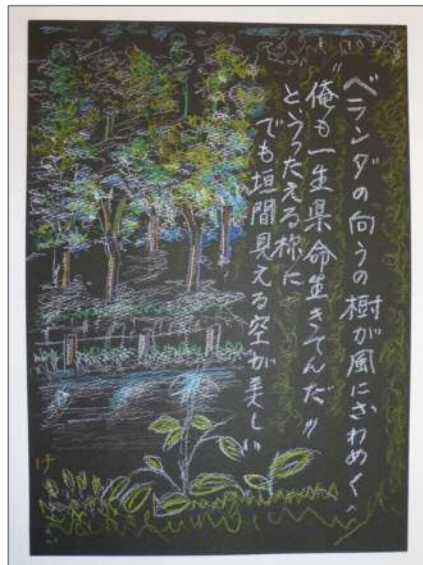 ベランダの向うの樹が風にさわめく、
“俺も一生県命生きてんだ”
とうったえる様に
でも垣間見える空が美しい
け